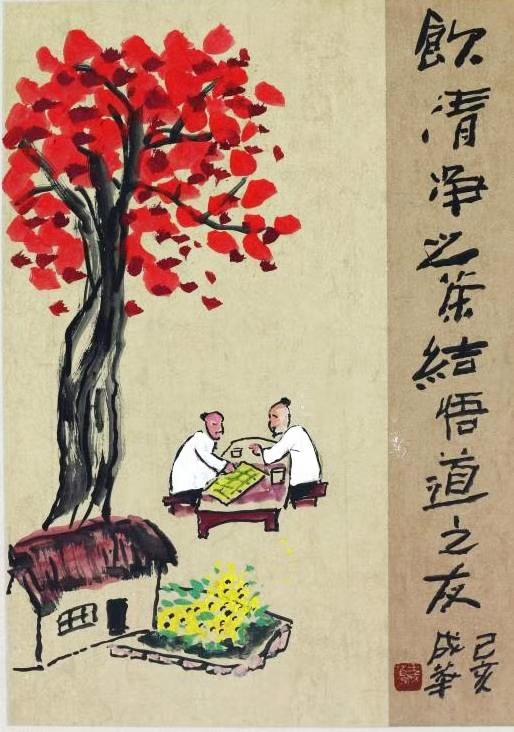 飲清净之茶結悟道之友
己亥
成華